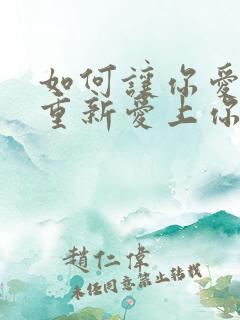 如何讓你愛
重新愛上你
趙仁偉
未經同意禁止轉載